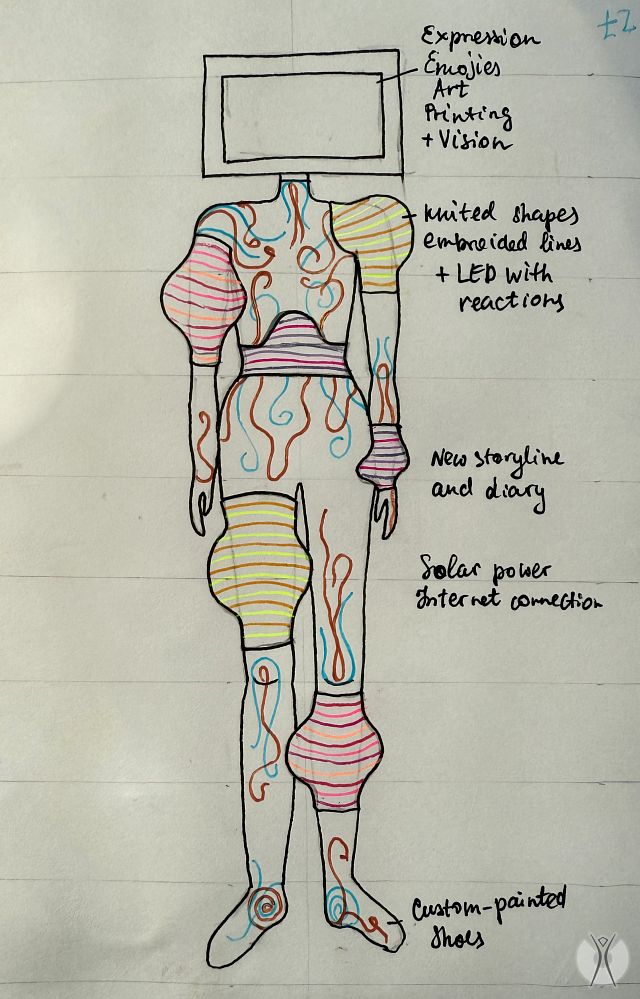 Expression
Emojies
Art
Printing
+ Vision
Knited shapes
embroided lines
+ LED with
reactions
New storyline
and diary
Solar power
Internet connection
Custom-painted
Shoes